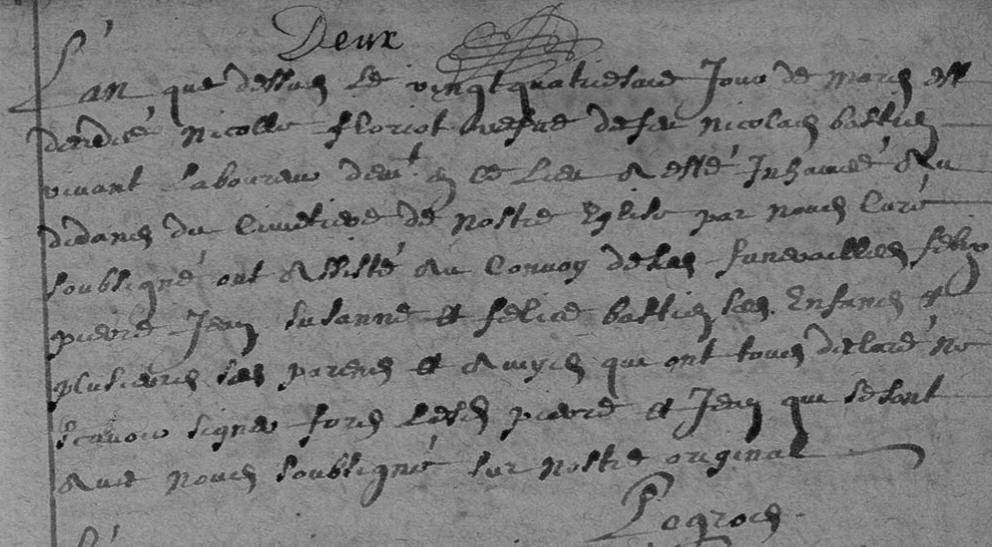 Deux
L'an que dessus le vingt quatriesme Jour de mars est
decedée Nicolle floriot vefve de feu Nicolas bastien
vivant laboureur demt. en ce lieu a esté Inhumée Au
dedans du Cimetiere de Nostre Eglise par nous Curé
soubsigné ont Assisté Au Convoy de ses funerailles felix
pierre Jean susanne et felice bastien ses Enfans et
plusieurs ses parens et Amys qui ont tous declaré ne
scavoir signer fors lesd pierre et Jean qui se sont
Avec nous soubsigné sur nostre original
Legros
L'